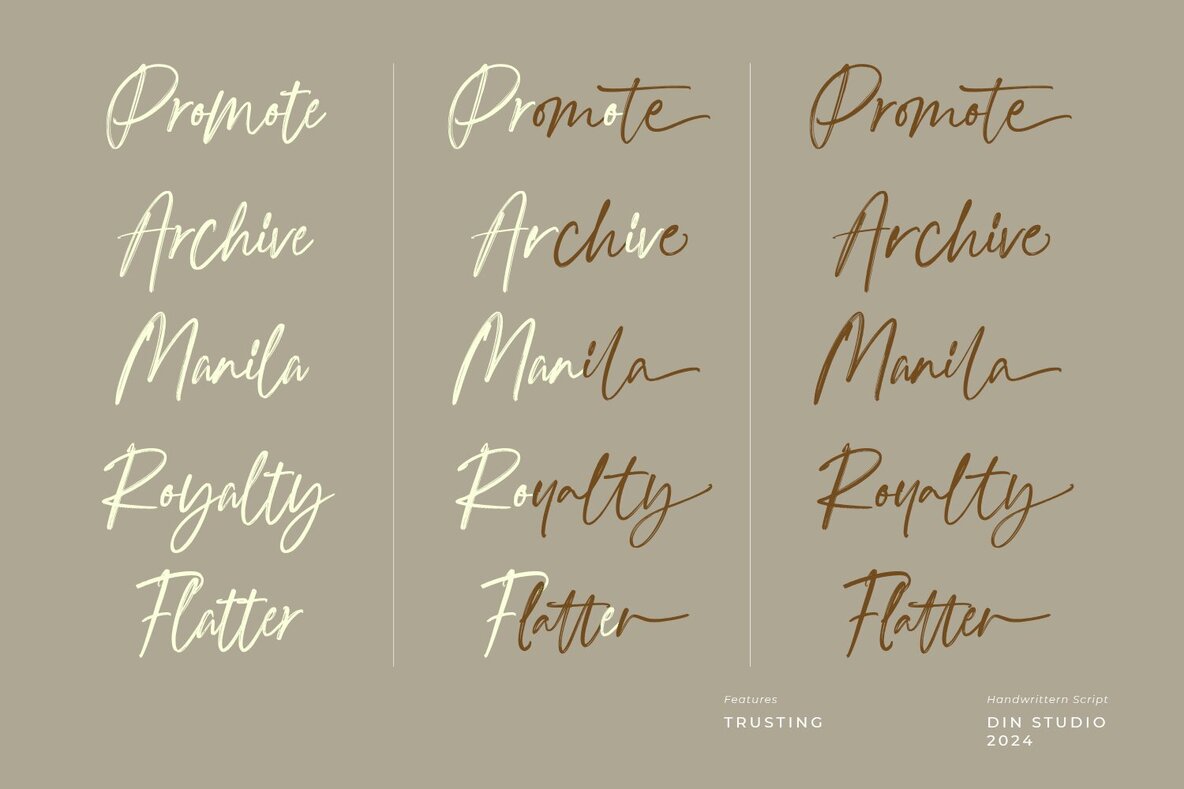 Promote Promote Promote
Archive Archive Archive
Manila Manila Manila
Royalty Royalty Royalty
Flatter Flatter Flatter
Features
TRUSTING
Handwrittern Script
DIN STUDIO
2024